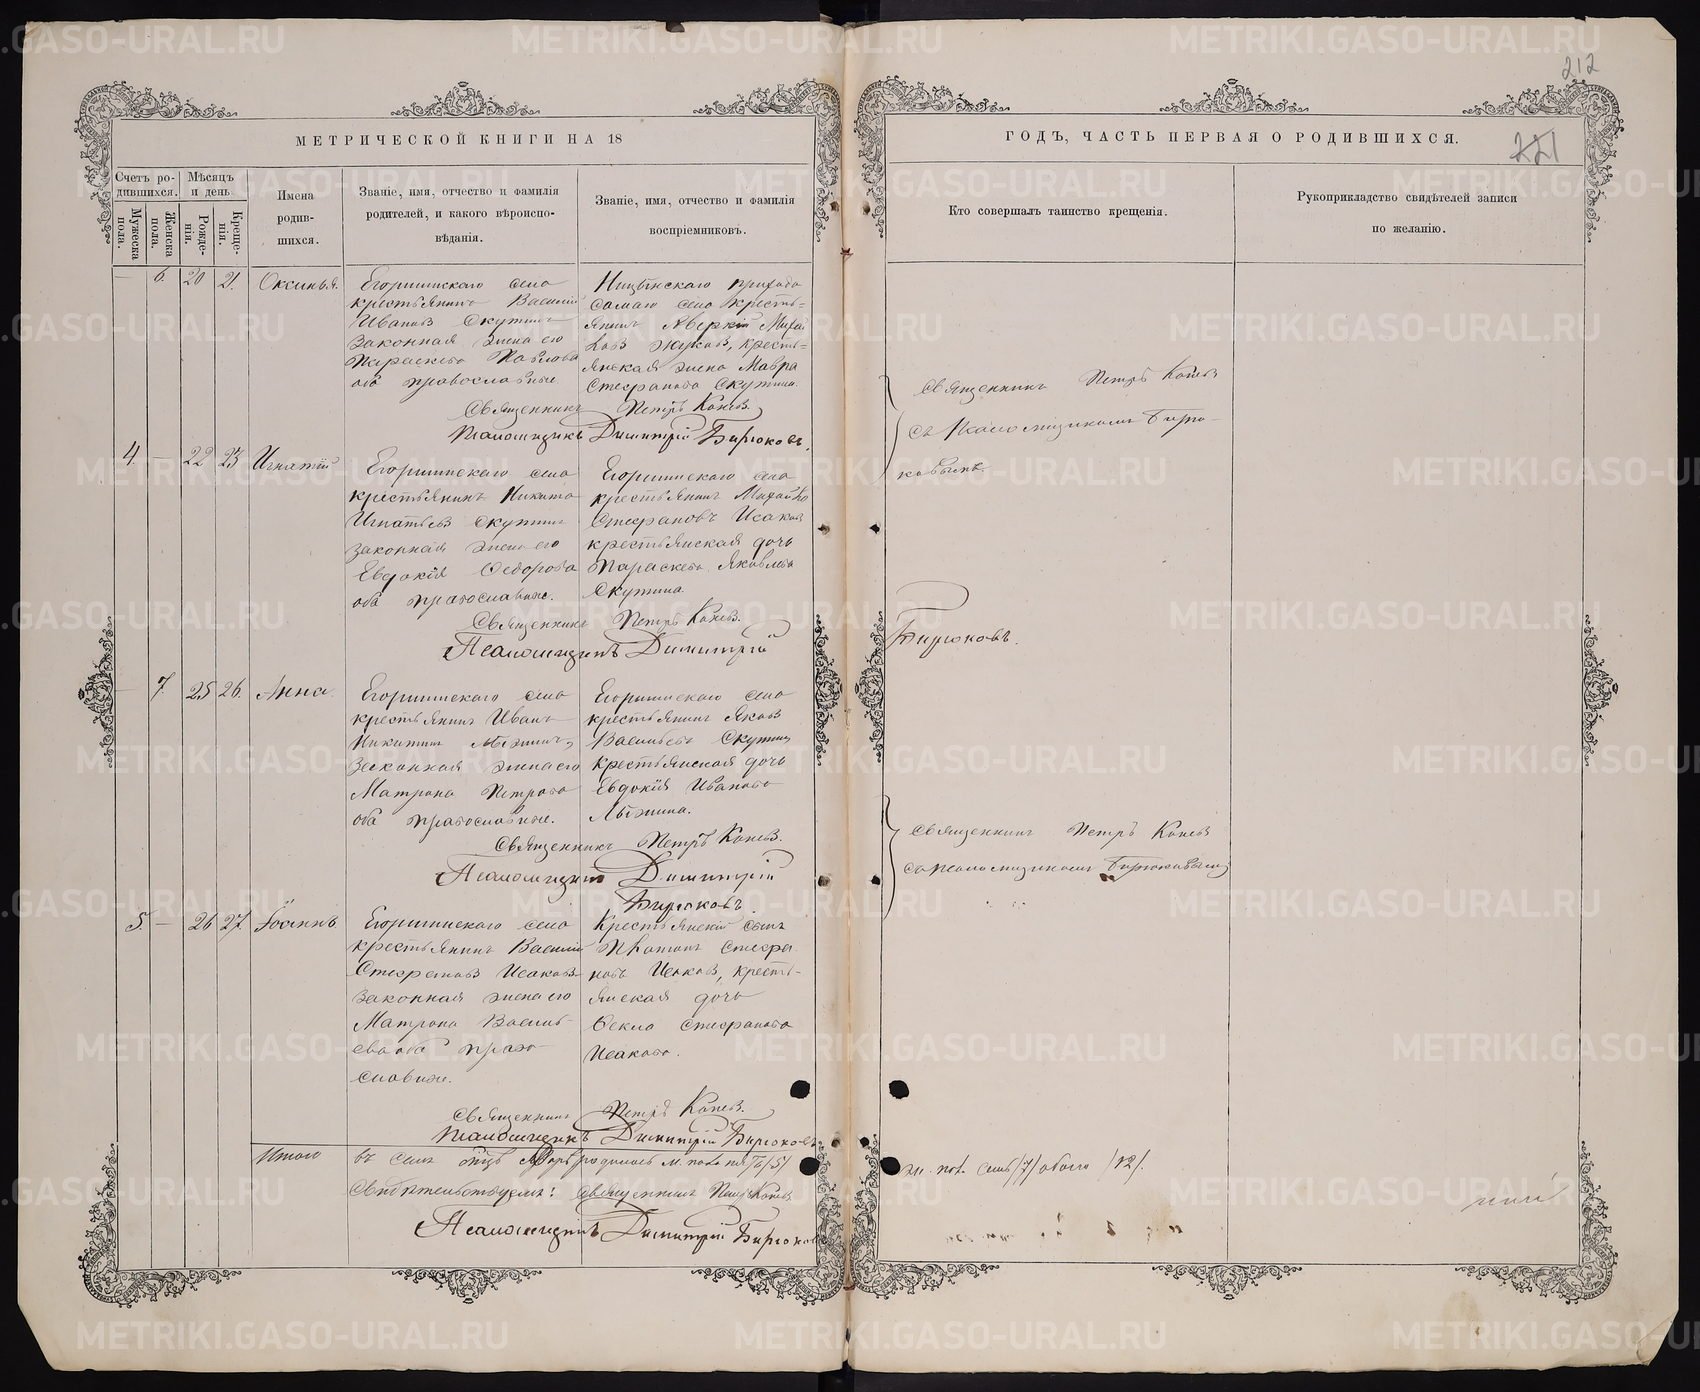 212
МЕТРИЧЕСКОЙ КНИГИ НА 18
ГОДЪ, ЧАСТЬ ПЕРВАЯ О РОДИВШИХСЯ.
221
Счетъ ро-
дившихся.
Мужеска
пола.
Женска
пола.
Мѣсяцъ
и день
Рожде-
нія.
Креще-
нія.
Имена
родив-
шихся.
Званіе, имя, отчество и фамилія
родителей, и какого вѣроиспо-
вѣданія.
Званіе, имя, отчество и фамилія
воспріемниковъ.
Кто совершалъ таинство крещенія.
Рукоприкладство свидѣтелей записи
по желанію.
— 6. 20 21. Оксинья.
Егоршинскаго села
крестьянинъ Василій
Ивановъ Скутинъ
законная жена его
Параскева Павлова
оба православные
Ницынскаго прихода
самаго села кресть=
янинъ Аверкій Михай
ловъ Жуковъ, кресть=
янская жена Мавра
Стефанова Скутина.
Священникъ Петръ Коневъ.
Псаломщикъ Димитрій Бирюковъ.
Священникъ Петръ Коневъ
съ Псаломщикомъ Бирю-
ковымъ.
4. — 22 23 Игнатій
Егоршинскаго села
крестьянинъ Никита
Игнатьевъ Скутинъ
законная жена его
Евдокія Ѳедорова
оба православные.
Егоршинскаго села
крестьянинъ Михайло
Стефановъ Исаковъ
крестьянская дочь
Параскева Яковлева
Скутина.
Священникъ Петръ Коневъ.
Псаломщикъ Димитрій
Бирюковъ.
— 7. 25 26. Анна.
Егоршинскаго села
крестьянинъ Иванъ
Никитинъ
законная жена его
Матрона Петрова
оба православные.
Егоршинскаго села
крестьянинъ Яковъ
Васильевъ Скутинъ
крестьянская дочь
Евдокія Иванова
Священникъ Петръ Коневъ.
Псаломщикъ Димитрій
Бирюковъ
Священникъ Петръ Коневъ
съ псаломщикомъ Бирюковымъ
5. — 26 27. Іоаннъ
Егоршинскаго села
крестьянинъ Василій
Стефановъ Исаковъ
законная жена его
Матрона Василь-
ева оба право-
славные.
Крестьянскій сынъ
Платонъ Стефа-
новъ Исаковъ, кресть-
янская дочь
Ѳекла Стефанова
Исакова.
Священникъ Петръ Коневъ.
Псаломщикъ Димитрій Бирюковъ
Итого въ семъ родилось м. пола пять /5/
ж. пол. семь /7/ обоего /12/.
Свидѣтельствуемъ: Священникъ Петръ Коневъ
Псаломщикъ Димитрій Бирюковъ
METRIKI.GASO-URAL.RU